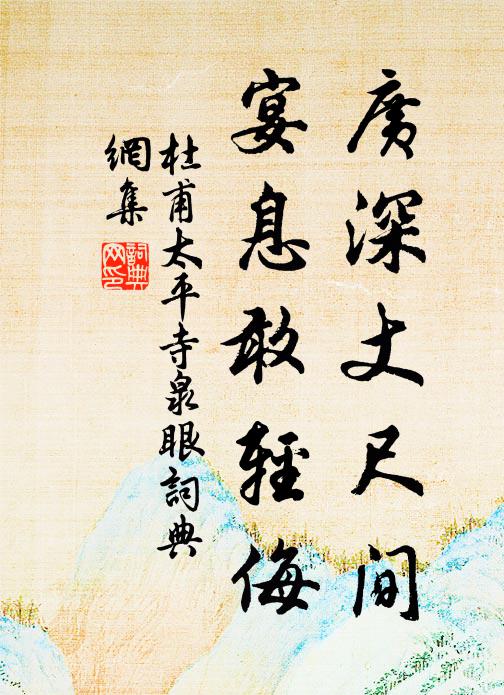 廣深丈尺间
宴息敢輕侮
杜甫太平寺泉眼詞典
網集
詞典网印